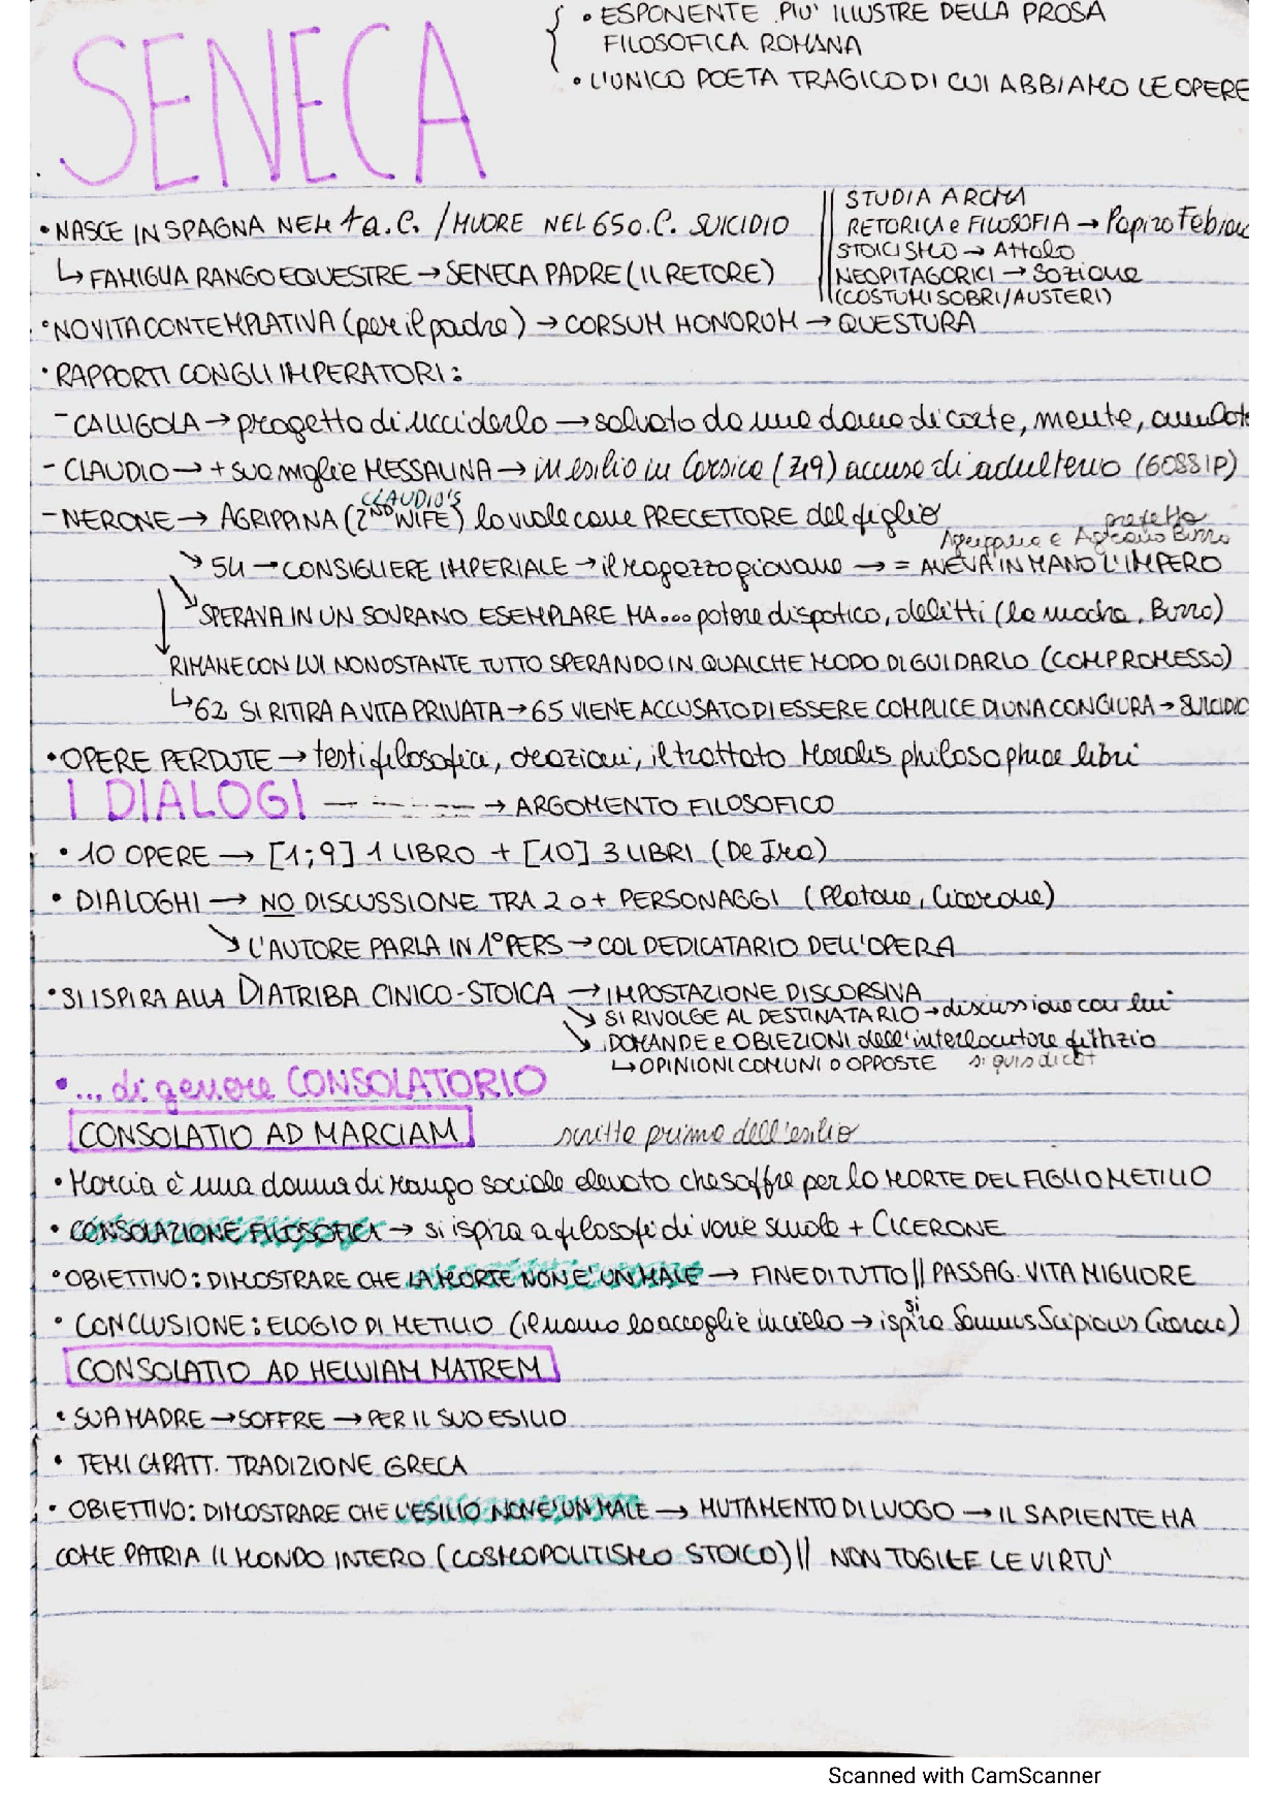 SENECA
• ESPONENTE PIU' ILLUSTRE DELLA PROSA
FILOSOFICA ROMANA
• L'UNICO POETA TRAGICO DI CUI ABBIAMO LE OPERE
• NASCE IN SPAGNA NEL 4 a.C. / MUORE NEL 65 d.C. SUICIDIO
↳ FAMIGLIA RANGO EQUESTRE → SENECA PADRE (IL RETORE)
STUDIA A ROMA
RETORICA e FILOSOFIA → Papiro Fabiano
STOICISMO → Attalo
NEOPITAGORICI → Sozione
(COSTUMI SOBRI/AUSTERI)
• NO VITA CONTEMPLATIVA (per il padre) → CORSUM HONORUM → QUESTURA
• RAPPORTI CON GLI IMPERATORI:
- CALLIGOLA → progetto di ucciderlo → salvato da una dama di corte, mente,
- CLAUDIO → + sua moglie MESSALINA → in esilio in Corsica (49) accusa di adulterio (GOSSIP)
- NERONE → AGRIPPINA (2ND CLAUDIO'S WIFE) lo vuole come PRECETTORE del figlio
prefetto
Agrippina e Afranio Burro
↘ 54 → CONSIGLIERE IMPERIALE → il ragazzo giovane → = AVEVA IN MANO L'IMPERO
↘ SPERAVA IN UN SOVRANO ESEMPLARE MA... potere dispotico, delitti (la madre, Burro)
↓ RIMANE CON LUI NONOSTANTE TUTTO SPERANDO IN QUALCHE MODO DI GUIDARLO (COMPROMESSO)
↳ 62 SI RITIRA A VITA PRIVATA → 65 VIENE ACCUSATO DI ESSERE COMPLICE DI UNA CONGIURA → SUICIDIO
• OPERE PERDUTE → testi filosofici, orazioni, il trattato Moralis philosophiae libri
I DIALOGI → ARGOMENTO FILOSOFICO
• 10 OPERE → [1;9] 1 LIBRO + [10] 3 LIBRI (De Ira)
• DIALOGHI → NO DISCUSSIONE TRA 2 o + PERSONAGGI (Platone, Cicerone)
↘ L'AUTORE PARLA IN 1° PERS → COL DEDICATARIO DELL'OPERA
• SI ISPIRA ALLA DIATRIBA CINICO-STOICA → IMPOSTAZIONE DISCORSIVA
↘ SI RIVOLGE AL DESTINATARIO → discussione con lui
↘ DOMANDE e OBIEZIONI dell'interlocutore fittizio
↳ OPINIONI COMUNI O OPPOSTE si quis dicat
• ... di genere CONSOLATORIO
CONSOLATIO AD MARCIAM scritta prima dell'esilio
• Marcia è una donna di rango sociale elevato che soffre per la MORTE DEL FIGLIO METILIO
• CONSOLAZIONE FILOSOFICA → si ispira a filosofi di varie scuole + CICERONE
• OBIETTIVO: DIMOSTRARE CHE LA MORTE NON E' UN MALE → FINE DI TUTTO || PASSAG. VITA MIGLIORE
• CONCLUSIONE: ELOGIO DI METILIO (il nonno lo accoglie in cielo → si ispira Somnus Scipionis Cicerone)
CONSOLATIO AD HELVIAM MATREM
• SUA MADRE → SOFFRE → PER IL SUO ESILIO
• TEMI CARATT. TRADIZIONE GRECA
• OBIETTIVO: DIMOSTRARE CHE L'ESILIO NON E' UN MALE → MUTAMENTO DI LUOGO → IL SAPIENTE HA
COME PATRIA IL MONDO INTERO (COSMOPOLITISMO STOICO) || NON TOGLIE LE VIRTU'
Scanned with CamScanner